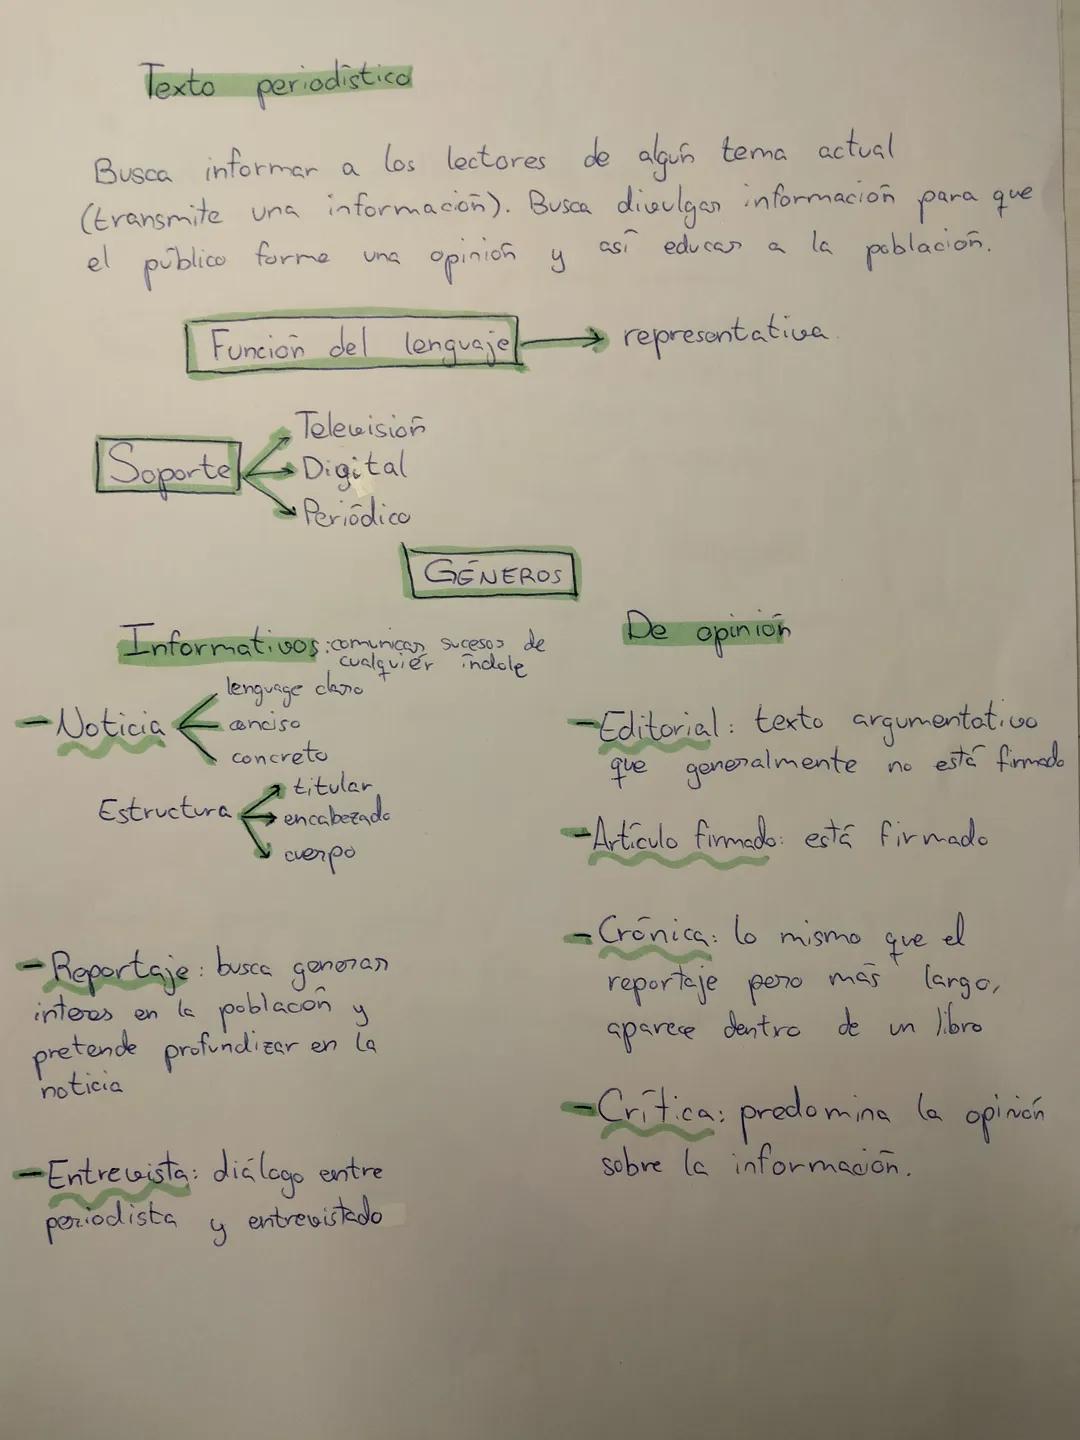 Texto periodístico
Busca informar a los lectores de algún tema actual
(transmite una información). Busca divulgar información para que
el público forme una opinión y así educar a la población.
Función del lenguaje → representativa
Soporte
Televisión
Digital
Periódico
GÉNEROS
Informativos: comunican sucesos de
cualquier índole
- Noticia
lenguage claro
conciso
concreto
Estructura
titular
encabezado
cuerpo
- Reportaje: busca generar
interes en la poblacón y
pretende profundizar en la
noticia
- Entrevista: diálogo entre
periodista y entrevistado
De opinión
- Editorial: texto argumentativo
que generalmente no está firmado
- Artículo firmado: está firmado
- Crónica: lo mismo que el
reportaje pero más largo,
aparece dentro de un libro
- Crítica: predomina la opinión
sobre la información.